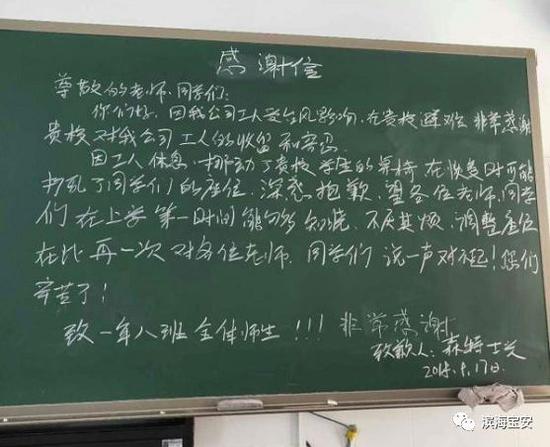 感谢信
尊敬的老师、同学们:
你们好,因我公司工人受台风影响,在贵校避难,非常感谢
贵校对我公司工人的收留和
因工人休息,挪动了贵校学生的桌椅,在恢复时可能
打乱了同学们的座位,深感抱歉,望各位老师、同学
们在上学第一时间能够多 不厌其烦,调整座位
在此再一次对各位老师、同学们说一声对不起!您们
辛苦了!
致一年八班全体师生!!!非常感谢
致歉人:森特士兴
9.17日.
滨海宝安